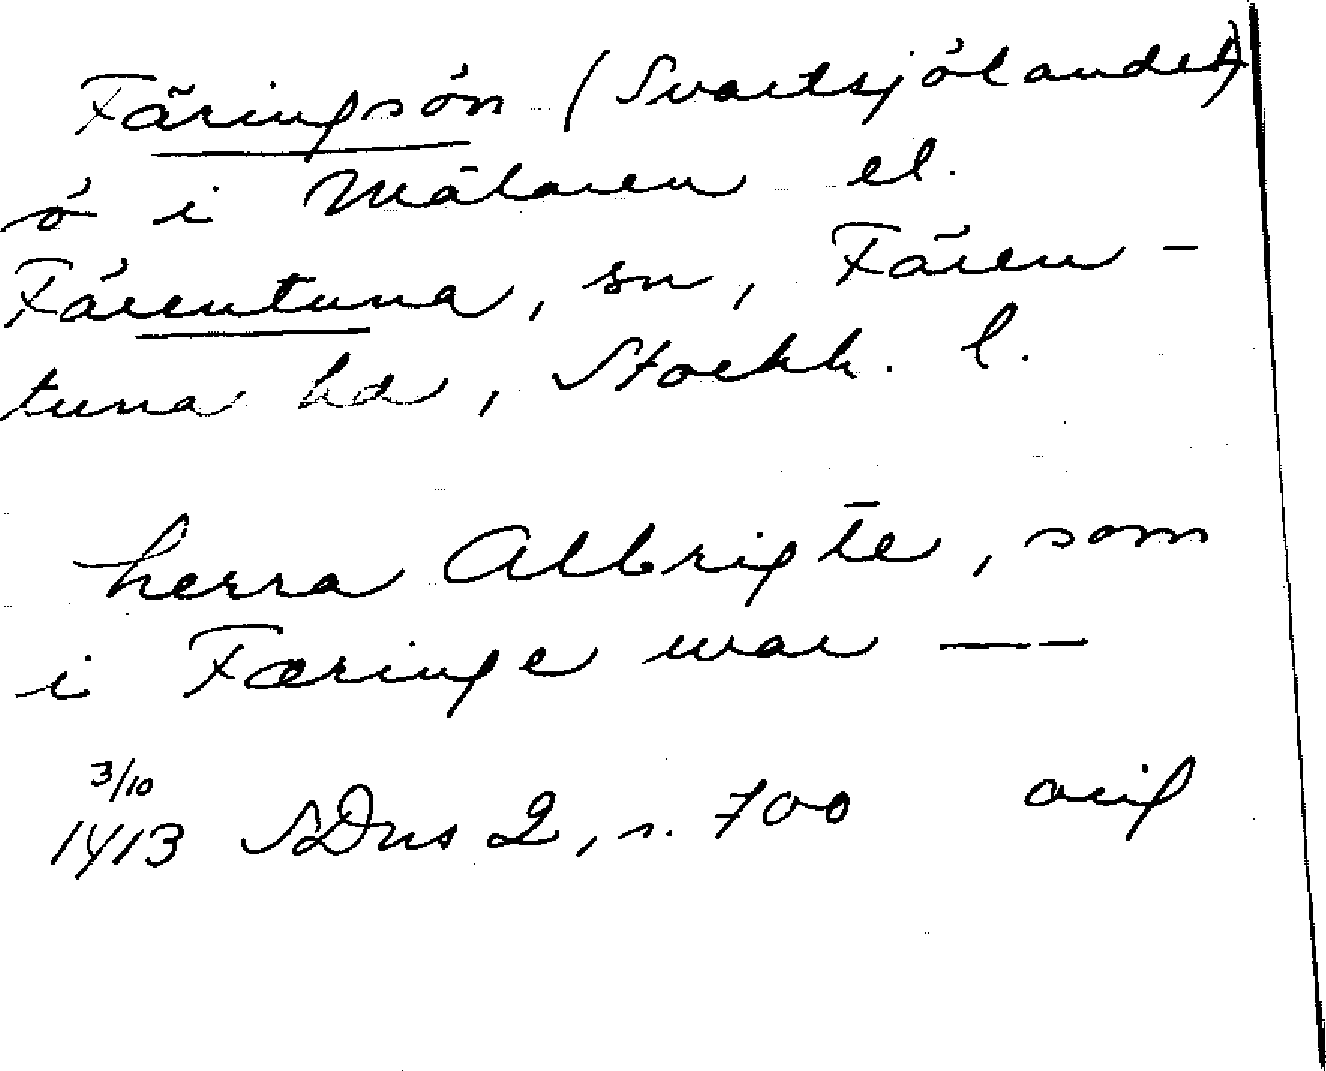 Färingsön (Svartsjölandet)
ö i Mälaren el.
Färentuna, sn, Fären-
tuna hd, Stockh. l.
herra Albrigte, som
i Færinge war ——
3/10
1413 SDns 2, s. 700 orig